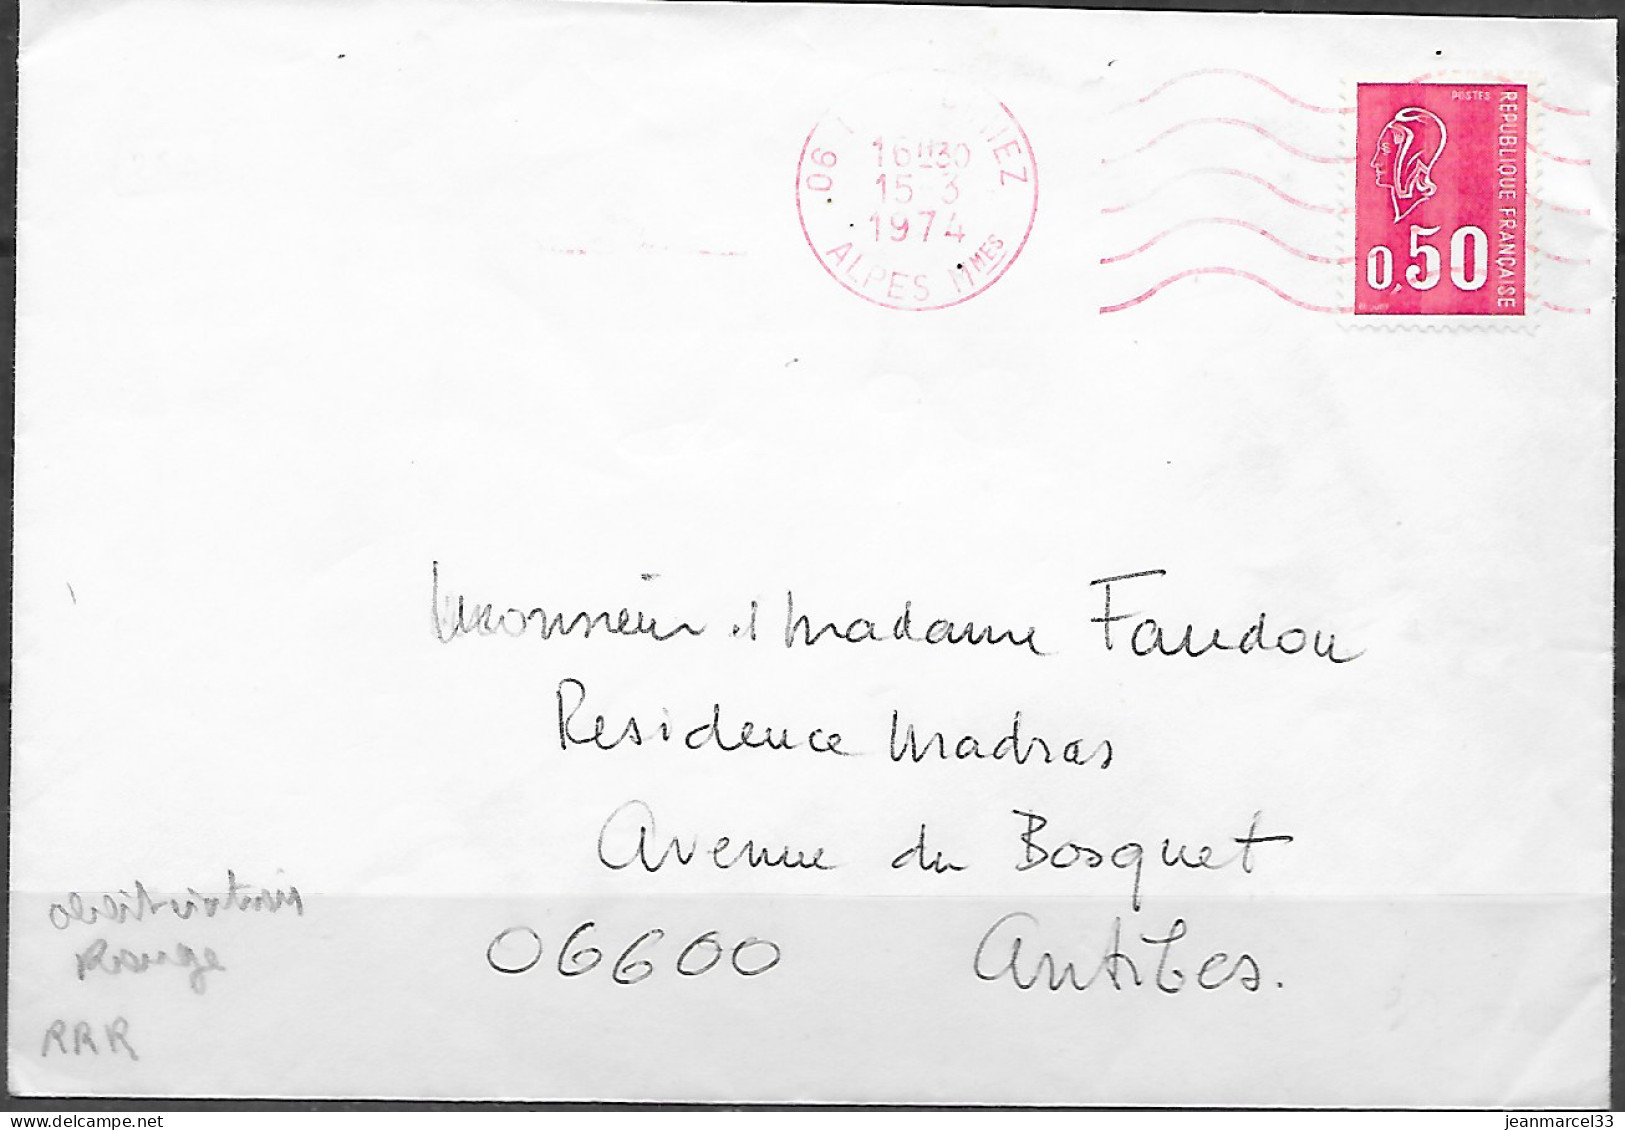 06
16H30
15-3
1974
ALPES MMES
POSTES
REPUBLIQUE FRANÇAISE
0,50
Monsieur et Madame Faudou
Residence Madras
Avenue du Bosquet
06600 Antibes.
oblitération
Rouge
RRR
www.delcampe.net
jeanmarcel33